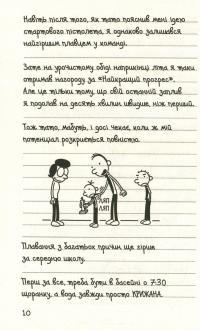 Навіть після того, як тато пояснив мені ідею
стартового пістолета, я однаково залишався
найгіршим плавцем у команді.
Зате на урочистому обіді наприкінці літа я таки
отримав нагороду за «Найкращий прогрес».
Але це тільки тому, що свій останній заплив
я подолав на десять хвилин швидше, ніж перший.
Тож тато, мабуть, і досі чекає, коли ж мій
потенціал розкриється повністю.
ЛЯП
ЛЯП
Плавання з багатьох причин ще гірше
за середню школу.
Перш за все, треба бути в басейні о 7:30
щоранку, а вода завжди просто КРИЖАНА.
10